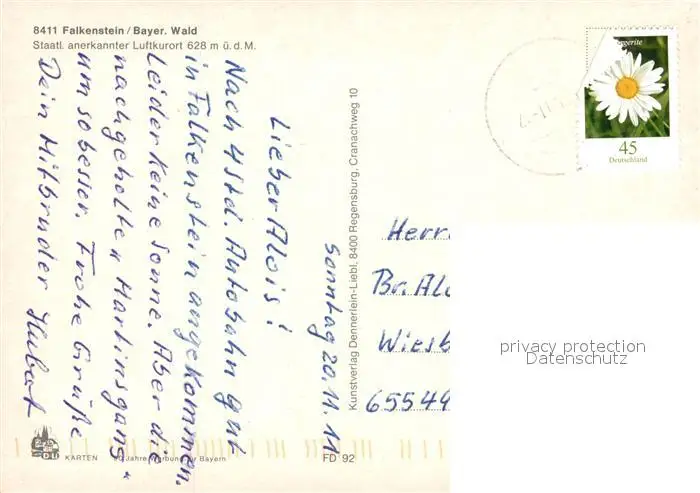 8411 Falkenstein / Bayer. Wald
Staatl. anerkannter Luftkurort 628 m ü. d. M.
Sonntag 20.11.11
Lieber Alois!
Nach 4 Std. Autobahn gut
in Falkenstein angekommen.
Leider keine Sonne. Aber die
nachgeholte "Martinsgans"
um so besser. Frohe Grüße
Dein Mitbruder Hubert
Kunstverlag Dennerlein-Liebl, 8400 Regensburg, Cranachweg 10
45
Deutschland
Herrn
Br. Alo
Wiesb
65549
privacy protection
Datenschutz
KARTEN
Jahre Werbung für Bayern
FD 92